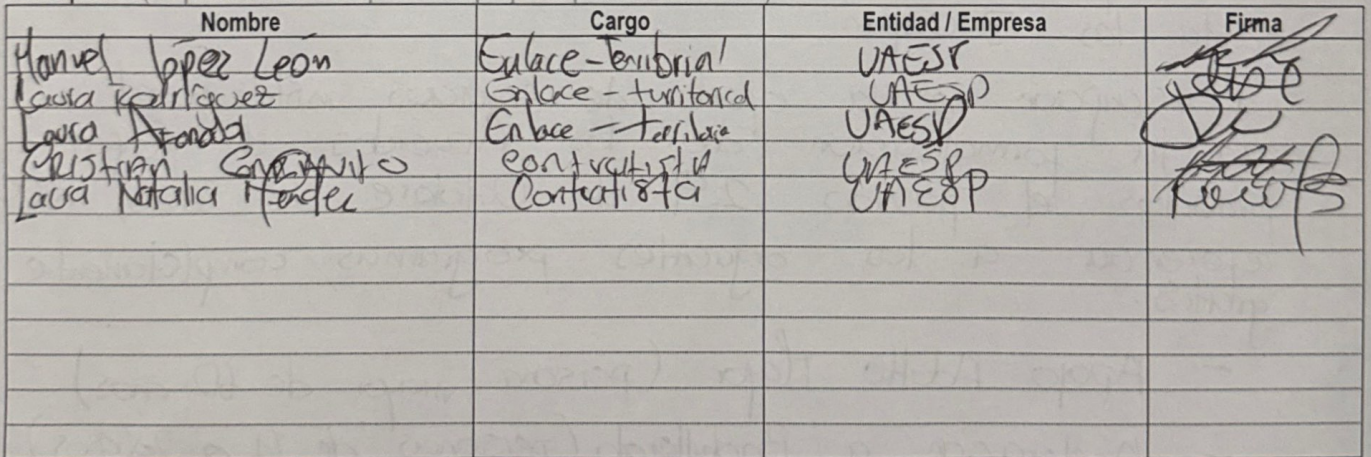 Nombre Cargo Entidad / Empresa Firma
Manuel López León Enlace - Territorial UAESP
Laura Rodríguez Enlace - territorial UAESP
Laura Aranda Enlace - territorial UAESP
Cristian contratista UAESP
Laura Natalia Mendez Contratista UAESP